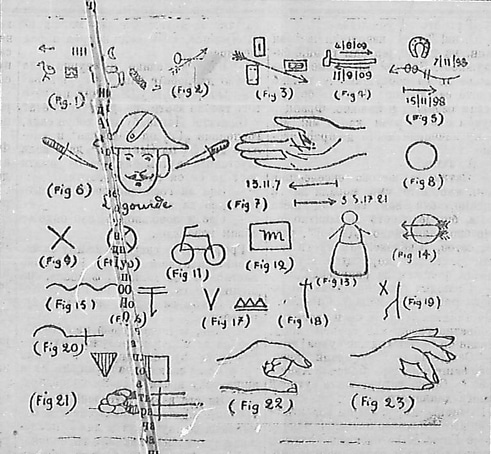 4/8/09
7/11/98
11/9/09
15/11/98
(Fig. 1)
(Fig 2)
(Fig 3)
(Fig 4)
(Fig 5)
(Fig 6)
Lagourde
13.11.7
(Fig 7)
3 5.17 21
(Fig 8)
(Fig 9)
(Fig 11)
m
(Fig 12)
(Fig 13)
(Fig 14)
(Fig 15)
(Fig 17)
(Fig 18)
(Fig 19)
(Fig 20)
(Fig 21)
(Fig 22)
(Fig 23)